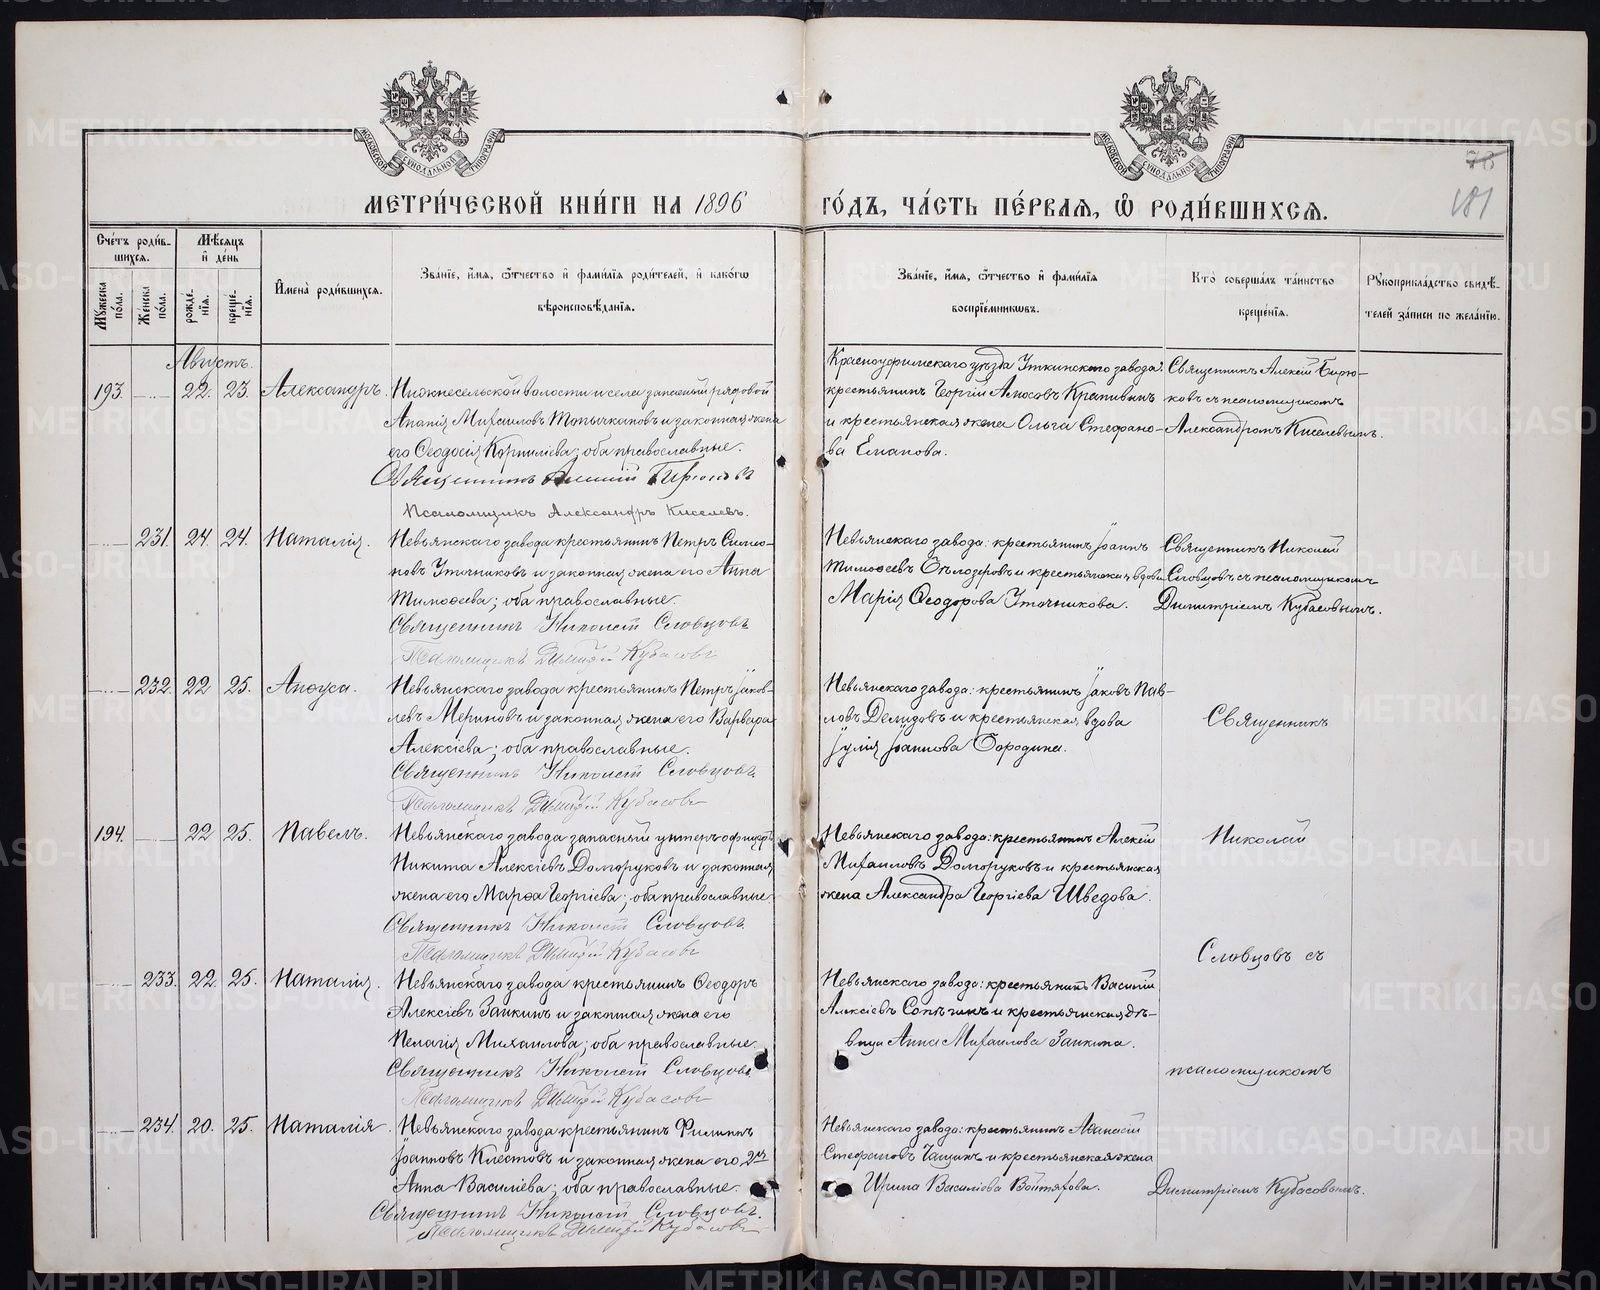 МЕТРИ́ЧЕСКОЙ КНИ́ГИ НА 1896
ГО́ДЪ, ЧА́СТЬ ПЕ́РВАЯ, Ѡ РОДИ́ВШИХСЯ.
78
181
Сче́тъ роди́в-
шихся.
Мѣ́сяцъ
и де́нь
Му́жеска по́ла.
Же́нска по́ла.
рожде́нїя.
креще́нїя.
Имена̀ роди́вшихся.
Зва́нїе, и́мя, ѻ҆́тчество и фами́лїя роди́телей, и како́гѡ
вѣроисповѣ́данїя.
Зва́нїе, и́мя, ѻ҆́тчество и фами́лїя
воспрїе́мникѡвъ.
Кто̀ соверша́лъ та́инство
креще́нїя.
Рукоприкла́дство свидѣ́-
телей за́писи по жела́нїю.
Августъ.
193. 22. 23. Александръ.
Нижнесельской волости и села запасный рядовой
Ананія Михаиловъ Топычкановъ и законная жена
его Ѳеодосія Корнилієва; оба православные.
Священникъ Алексій Бирюковъ
Псаломщикъ Александръ Киселевъ.
Красноуфимскаго уѣзда Уткинскаго завода:
крестьянинъ Георгій Амосовъ Крапивинъ
и крестьянская жена Ольга Стефано-
ва Еманова.
Священникъ Алексій Бирю-
ковъ съ псаломщикомъ
Александромъ Киселевымъ.
231. 24. 24. Наталія.
Невьянскаго завода крестьянинъ Петръ Симео-
новъ Уточниковъ и законная жена его Анна
Тимоѳеева; оба православные.
Священникъ Николай Словцовъ
Псаломщикъ Димитрій Кубасовъ
Невьянскаго завода: крестьянинъ Іоаннъ
Тимоѳеевъ Бѣлозеровъ и крестьянская вдова
Марія Ѳеодорова Уточникова.
Священникъ Николай
Словцовъ съ псаломщикомъ
Димитріемъ Кубасовымъ.
232. 22 25. Анѳуса.
Невьянскаго завода крестьянинъ Петръ Іаков-
левъ Мериновъ и законная жена его Варвара
Алексіева; оба православные.
Священникъ Николай Словцовъ
Псаломщикъ Димитрій Кубасовъ
Невьянскаго завода: крестьянинъ Іаковъ Пав-
ловъ Демидовъ и крестьянская вдова
Іулія Іоаннова Бородина.
Священникъ
194. 22 25. Павелъ.
Невьянскаго завода запасный унтеръ-офицеръ
Никита Алексіевъ Долгоруковъ и законная
жена его Марѳа Георгіева; оба православные
Священникъ Николай Словцовъ
Псаломщикъ Димитрій Кубасовъ
Невьянскаго завода: крестьянинъ Алексій
Михаиловъ Долгоруковъ и крестьянская
жена Александра Георгіева Шведова.
Николай
Словцовъ съ
233. 22. 25. Наталія.
Невьянскаго завода крестьянинъ Ѳеодоръ
Алексіевъ Заикинъ и законная жена его
Пелагія Михаилова; оба православные.
Священникъ Николай Словцовъ
Псаломщикъ Димитрій Кубасовъ
Невьянскаго завода: крестьянинъ Василій
Алексіевъ и крестьянская дѣ-
вица Анна Михаилова Заикина.
псаломщикомъ
234. 20. 25. Наталія
Невьянскаго завода крестьянинъ Филиппъ
Іоанновъ Клестовъ и законная жена его
Анна Василіева; оба православные.
Священникъ Николай Словцовъ.
Псаломщикъ Димитрій Кубасовъ
Невьянскаго завода: крестьянинъ Аѳанасій
Стефановъ и крестьянская жена
Ирина Василіева
Димитріемъ Кубасовымъ.
METRIKI.GASO-URAL.RU